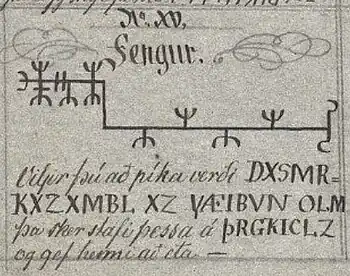 No. XV.
Fengur.
Viljir þú að píka verði DXSMR=
KXZ XMBL XZ YÆIBVN OLM
þa sker stafi þessa á ÞRGKICLZ
og gef henni að eta. —